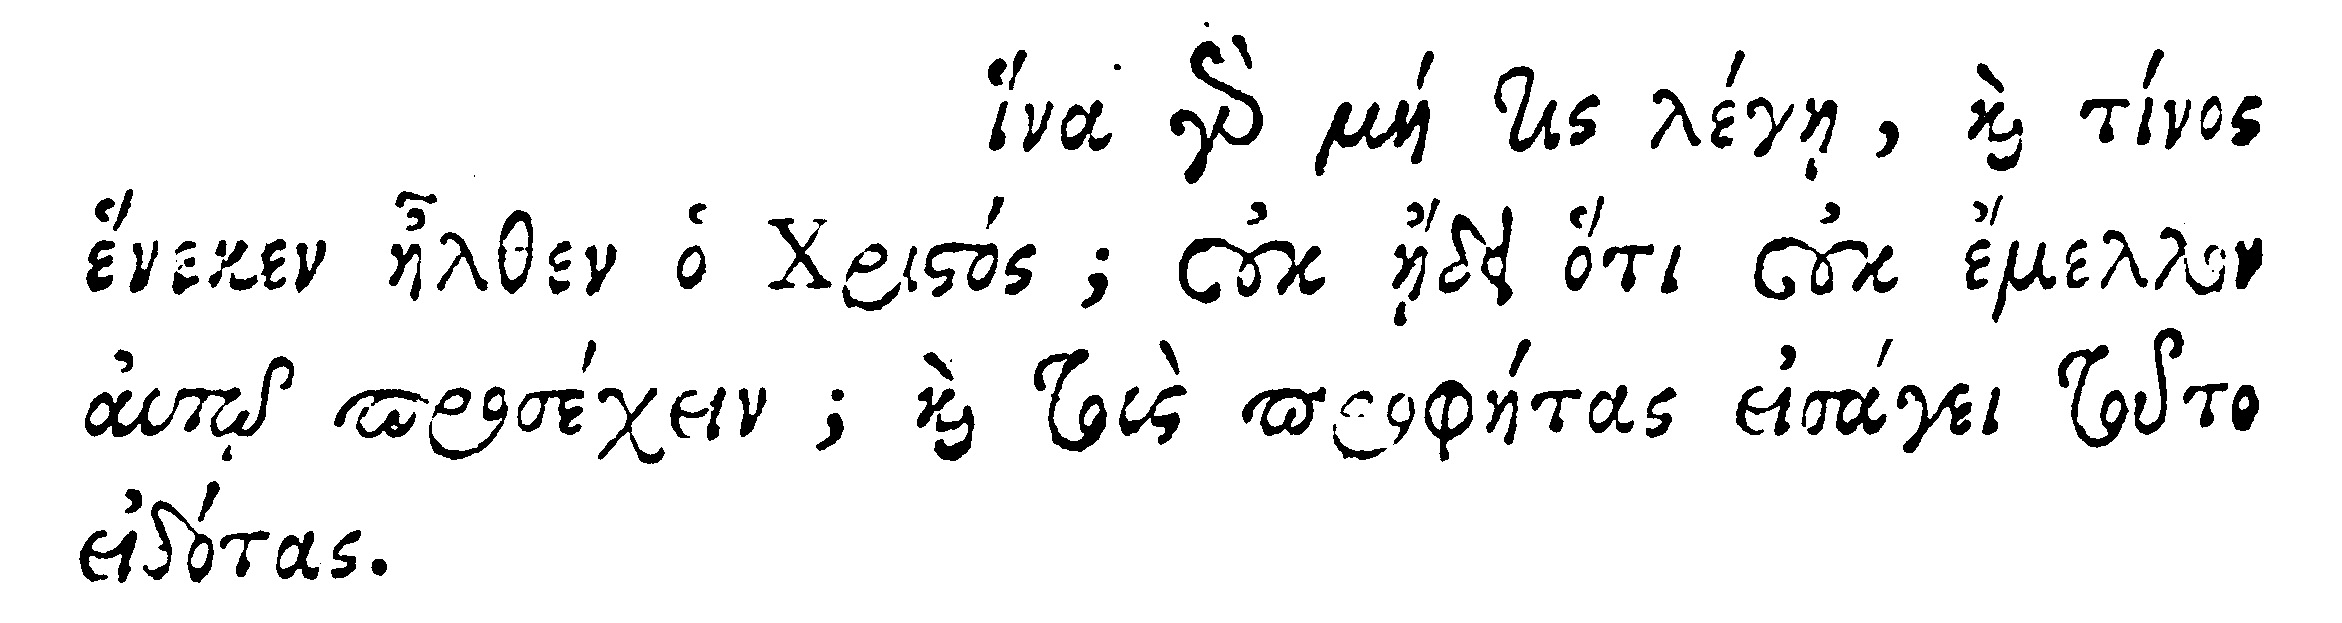 ἵνα γὰρ μή τις λέγῃ, καὶ τίνος
ἕνεκεν ἦλθεν ὁ Χριστός; οὐκ ᾔδει ὅτι οὐκ ἔμελλον
αὐτῷ προσέχειν; καὶ τοὺς προφήτας εἰσάγει τοῦτο
εἰδότας.